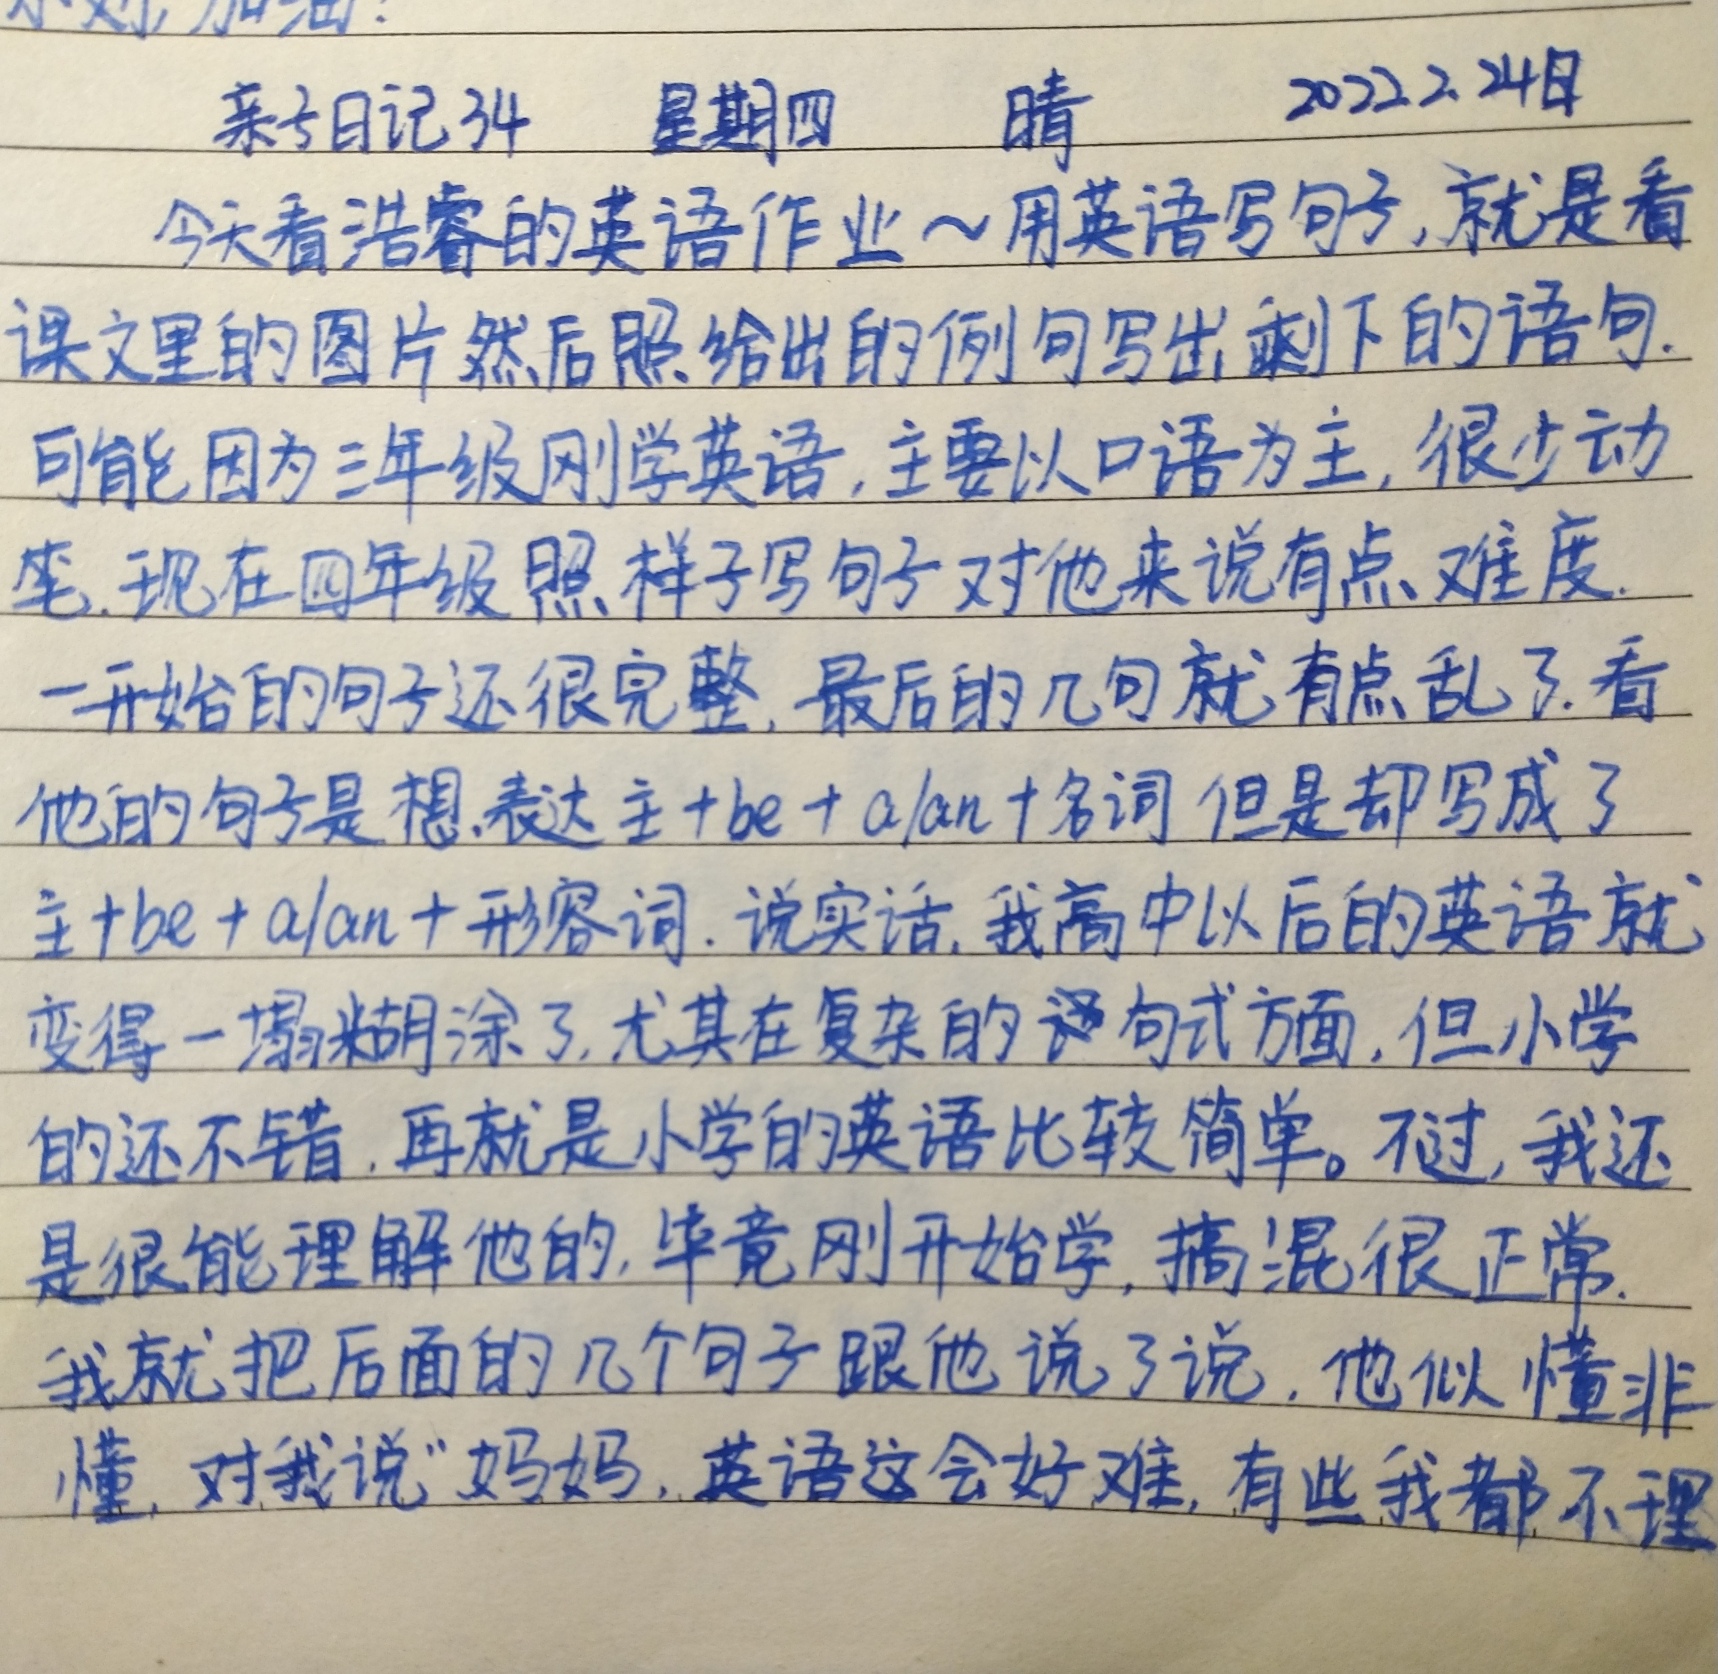 加油!
亲子日记34 星期四 晴 2022.2.24日
今天看浩睿的英语作业～用英语写句子,就是看
课文里的图片然后照给出的例句写出剩下的语句.
可能因为三年级刚学英语,主要以口语为主,很少动
笔.现在四年级照样子写句子对他来说有点难度.
一开始的句子还很完整,最后的几句就有点乱了.看
他的句子是想表达主+be+a/an+名词但是却写成了
主+be+a/an+形容词.说实话,我高中以后的英语就
变得一塌糊涂了,尤其在复杂的句式方面,但小学
的还不错,再就是小学的英语比较简单。不过,我还
是很能理解他的,毕竟刚开始学,搞混很正常.
我就把后面的几个句子跟他说了说,他似懂非
懂,对我说“妈妈,英语这会好难,有些我都不理